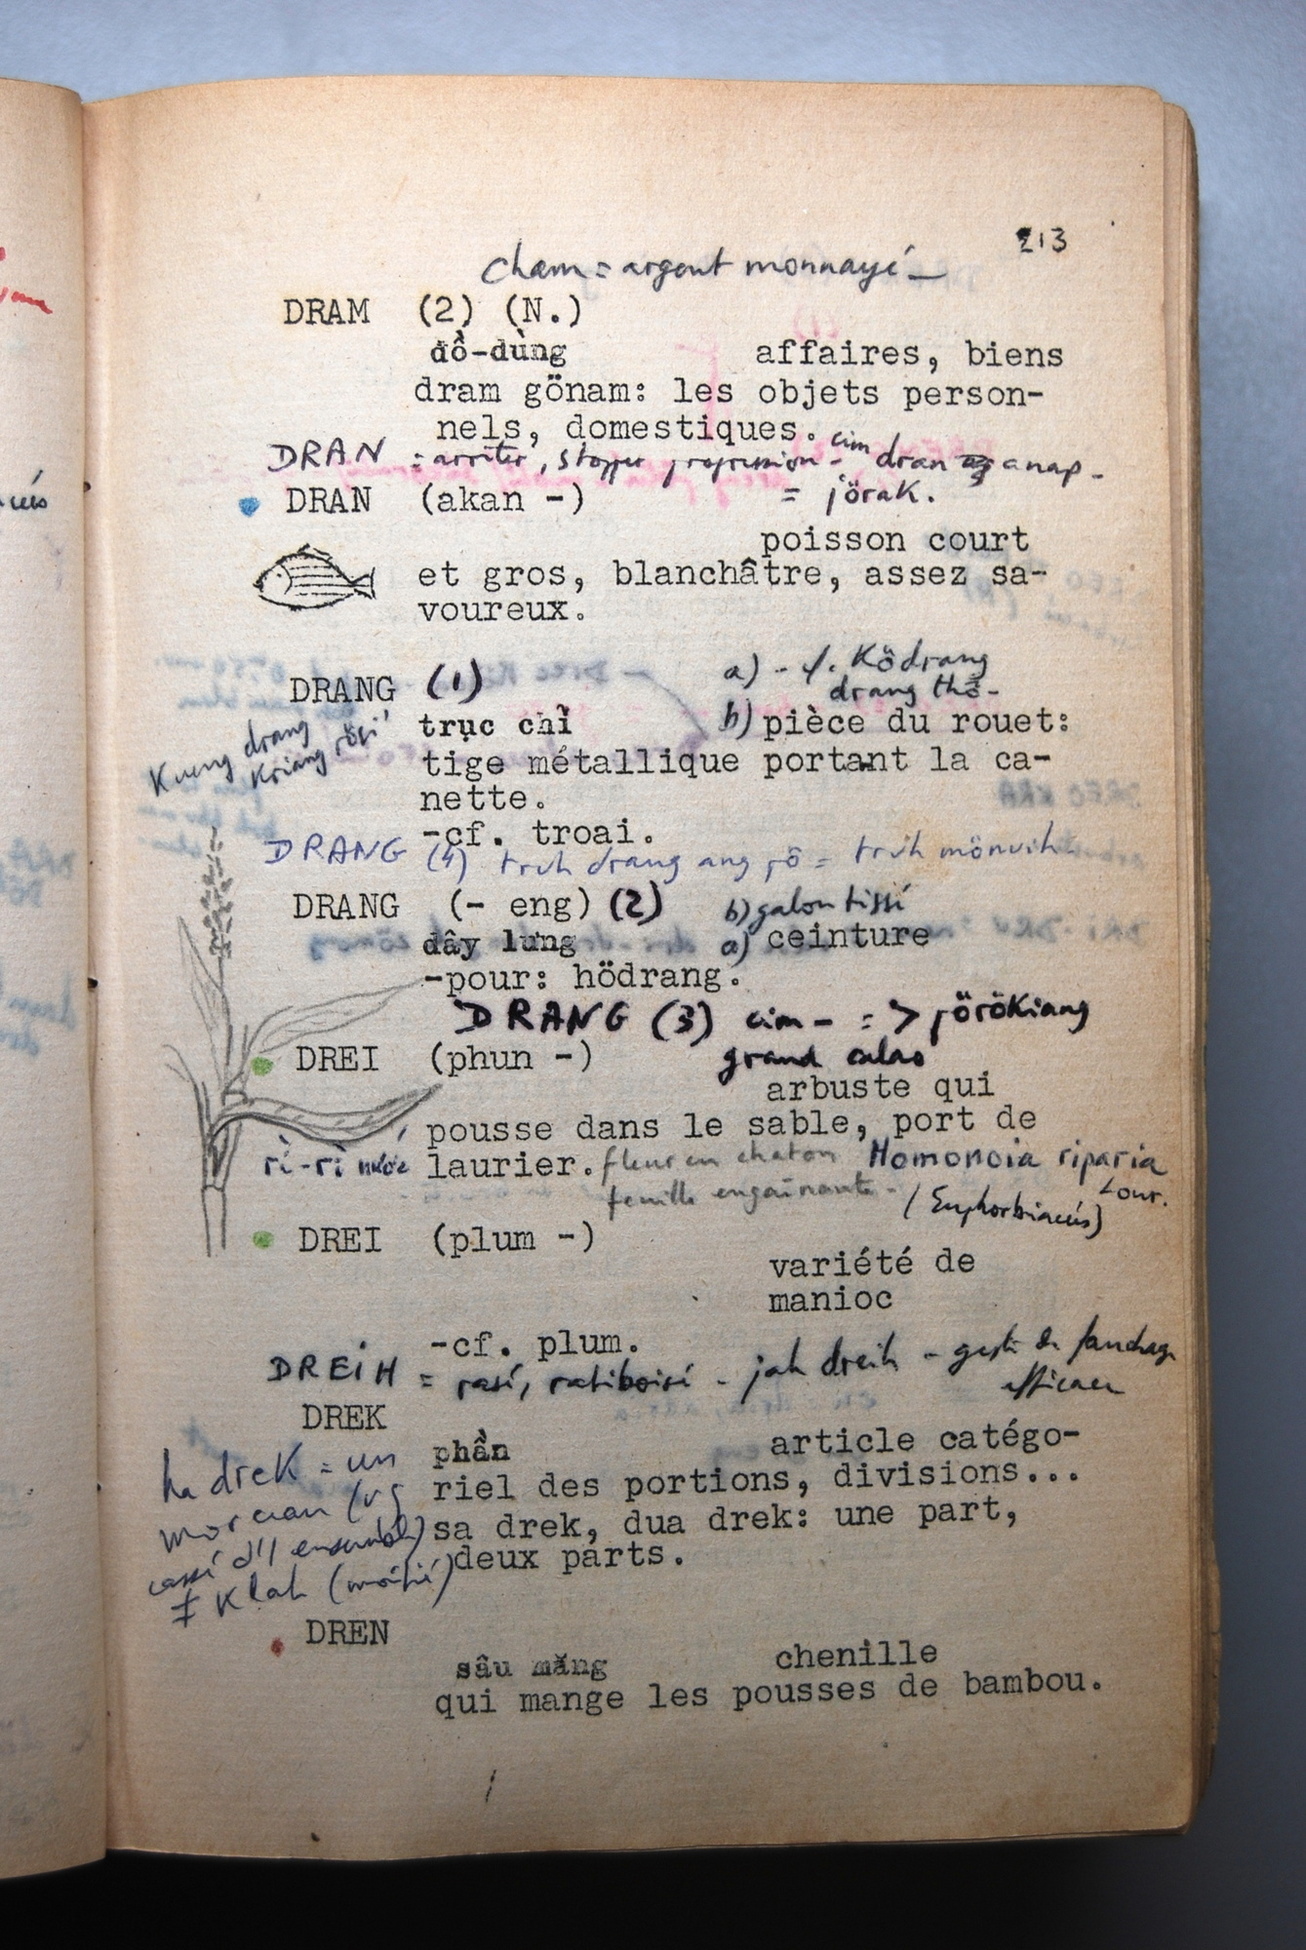 213
cham = argent monnayé
DRAM (2) (N.)
đồ-dùng affaires, biens
dram gönam: les objets person-
nels, domestiques.
DRAN = arrêter, stopper progression - cim dran anap -
= jörak.
DRAN (akan -)
poisson court
et gros, blanchâtre, assez sa-
voureux.
a) - cf. Ködrang
drang thô -
DRANG (1)
trục chỉ b) pièce du rouet:
Kueng drang
Kriang rösi
tige métallique portant la ca-
nette.
-cf. troai.
DRANG (4) truh drang ang rô = truh mönuih
DRANG (- eng) (2) b) galon tissé
dây lưng a) ceinture
-pour: hödrang.
DRANG (3) cim - => jörökiang
grand calao
DREI (phun -)
arbuste qui
pousse dans le sable, port de
rì-rì nước laurier. fleur en chaton Homonoia riparia
Lour.
feuille engaînante - (Euphorbiacées)
DREI (plum -)
variété de
manioc
-cf. plum.
DREIH = rasé, ratiboisé - jah dreih - geste de fauchage
efficace
DREK
phần article catégo-
riel des portions, divisions...
sa drek, dua drek: une part,
deux parts.
ha drek = un
morceau (vg
cassé d'1 ensemble)
≠ Klah (moitié)
DREN
sâu măng chenille
qui mange les pousses de bambou.